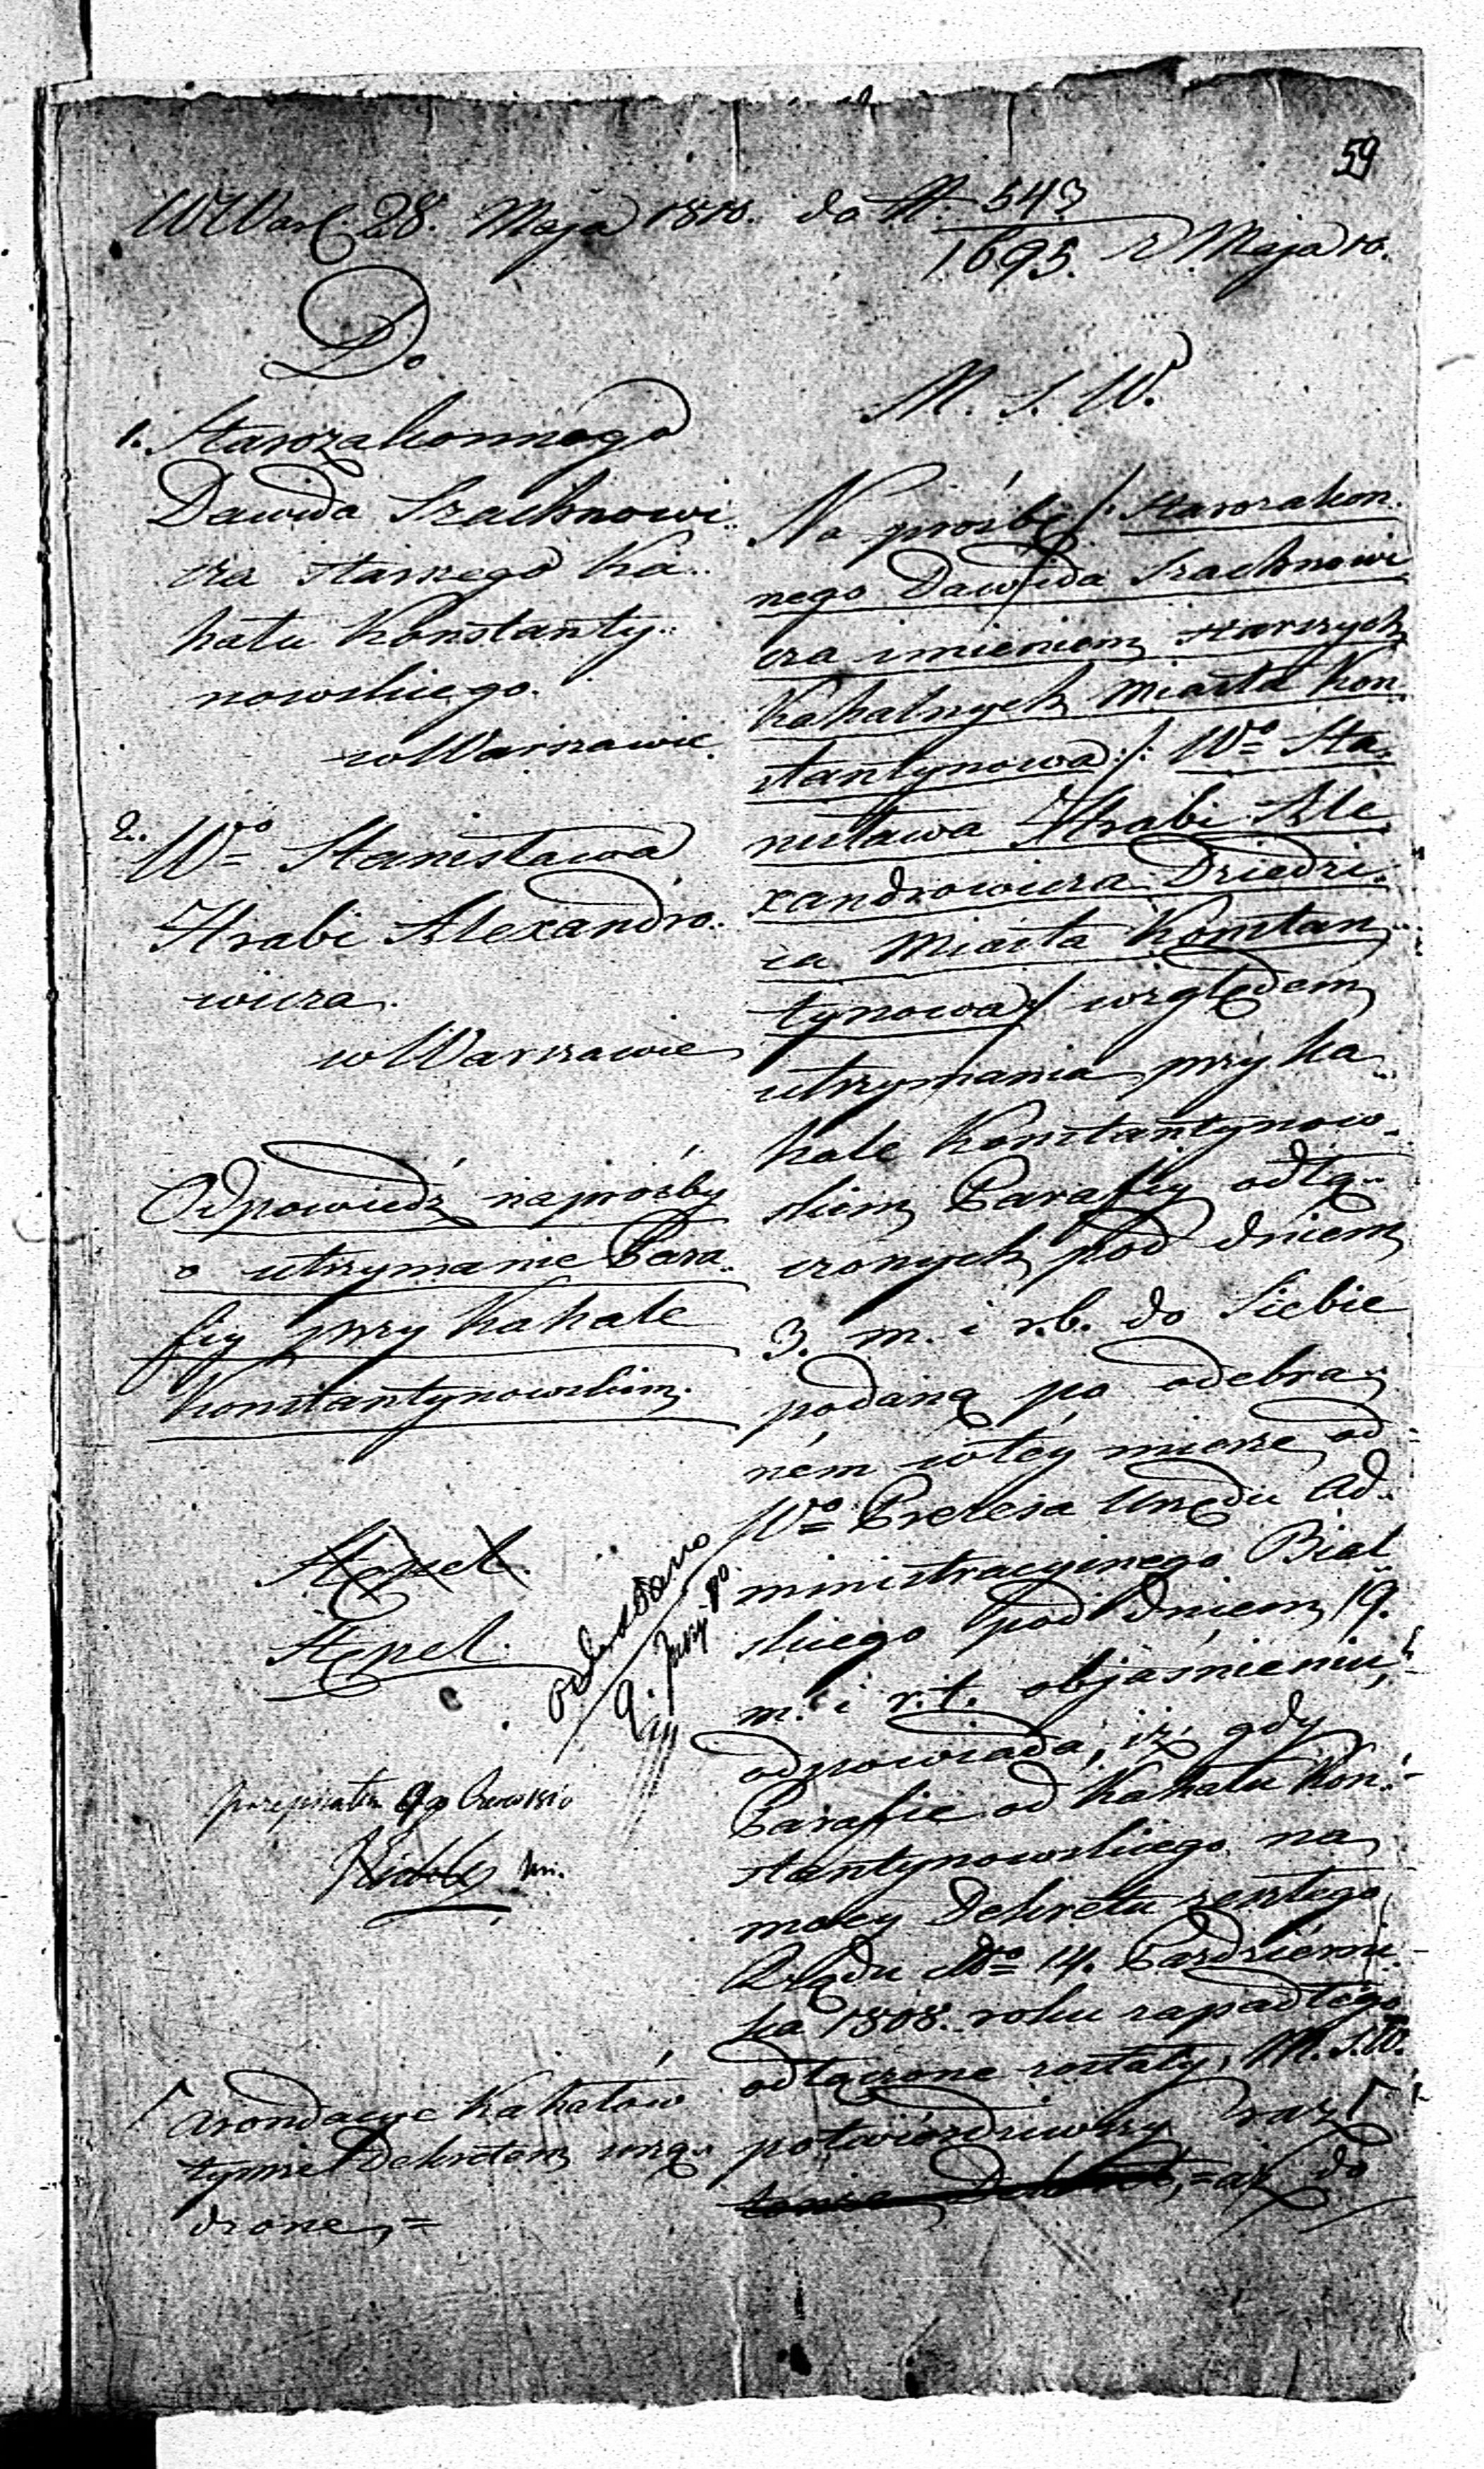 59
W Wars. 28. Maja 1810. do N. 543
1695. r Maja 10.
Do
1. Starozakonnego
Dawida Szachnowi..
cza starszego Ka..
hału Konstanty..
nowskiego.
w Warszawie.
2. Wo Stanisława
Hrabi Alexandro..
wicza.
w Warszawie
Odpowiedź na prośby
o utrzymanie Para..
fiy przy Kahale
Konstantynowskim.
Stępel.
Stępel.
odesłano
9. Juny
przepisałem 9go Czerwca 1810
M. S. W.
Na prośbę /: Starozakon.
nego Dawida Szachnowi
cza imieniem starszych
Kahalnych Miasta Kon.
stantynowa :/: Wo Sta.
nisława Hrabi Ale
xandrowicza Dziedzi.
ca Miasta Konstan
tynowa/ względem
utrzymania przy Ka..
hale Konstantynow..
skim Parafiy odłą..
czonych pod dniem
3. m. i r. b. do Siebie
podaną po odebra
ném w tey mierze od
Wo Prezesa Urzędu Ad..
ministracyinego Bial
skiego pod dniem 19.
m. i r. t. objaśnieniu,
odpowiada, iż gdy
Parafie od Kahału Kon..
stantynowskiego na
mocy Dekretu zeszłego
Rządu dto 14. Październi
ka 1808. roku zapadłego
odłączone zostały, M. S. W.
potwierdziwszy raz Γ
=aż do
Γ arondacyę Kahałów
tymże Dekretem urzą..
dzone,=